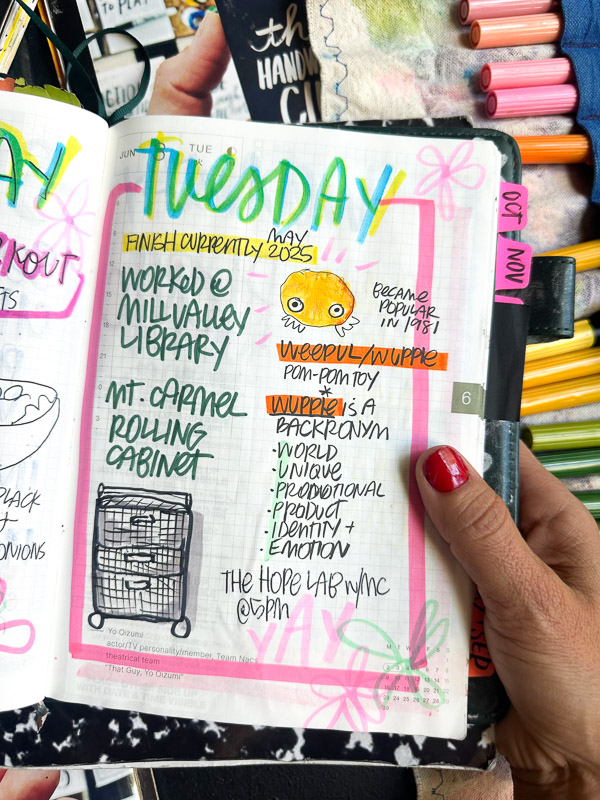 TO PLAY
th
HANDW
CI
CTION
AY
RKOUT
TS
BLACK
+
ONIONS
JUN
TUE
TUESDAY
FINISH CURRENTLY MAY 2025
WORKED @
MILL VALLEY
LIBRARY
BECAME
POPULAR
IN 1981
WEEPUL/WUPPIE
POM-POM TOY
*
WUPPIE IS A
BACKRONYM
·WORLD
·UNIQUE
·PROMOTIONAL
·PRODUCT
·IDENTITY +
·EMOTION
MT. CARMEL
ROLLING
CABINET
THE HOPE LAB w/MC
@5PM
YAY
Yo Oizumi
actor/TV personality/member, Team Nacs
theatrical team
"That Guy, Yo Oizumi"
OCT
NOV
6